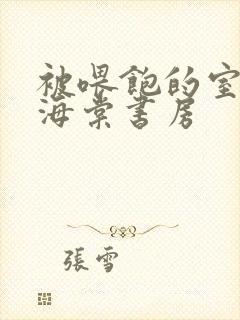 被喂飽的室
海棠書房
張雪